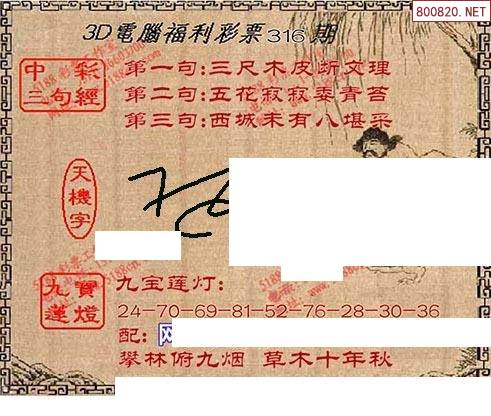 800820.NET
3D電腦福利彩票316期
中彩
三句經
第一句:三尺木皮断文理
第二句:五花寂寂委青苔
第三句:西城未有八堪采
天機字
九寶
蓮燈
九宝莲灯:
24-70-69-81-52-76-28-30-36
配:
攀林俯九烟 草木十年秋